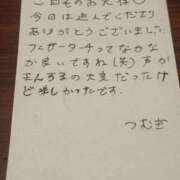 二日もののお兄様♡
今日は遊んでくださり
ありがとうございました
フェザータッチってなかなか
か良いですね(笑) 声が
まんするの大変だったけ
ど楽しかったです。
つむぎ